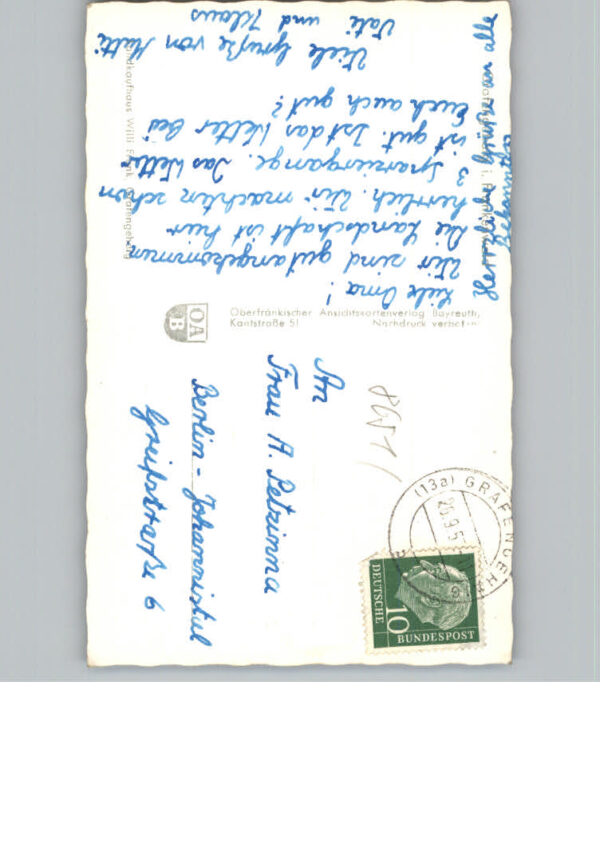 Liebe Oma!
Wir sind gut angekommen
Die Landschaft ist hier
herrlich. Wir machten schon
3 Sparziergänge. Das Wetter
ist gut. Ist das Wetter bei
Euch auch gut?
Viele Grüße von Mutti
Vati und Klaus
an alle
OAB
Oberfränkischer Ansichtskartenverlag Bayreuth,
Kantstraße 51 Nachdruck verboten
Willi
An
Frau A. Petzinna
Berlin - Johannistal
Greifstraße 6
8651
(13a) GRAFENGEH
DEUTSCHE
BUNDESPOST
10